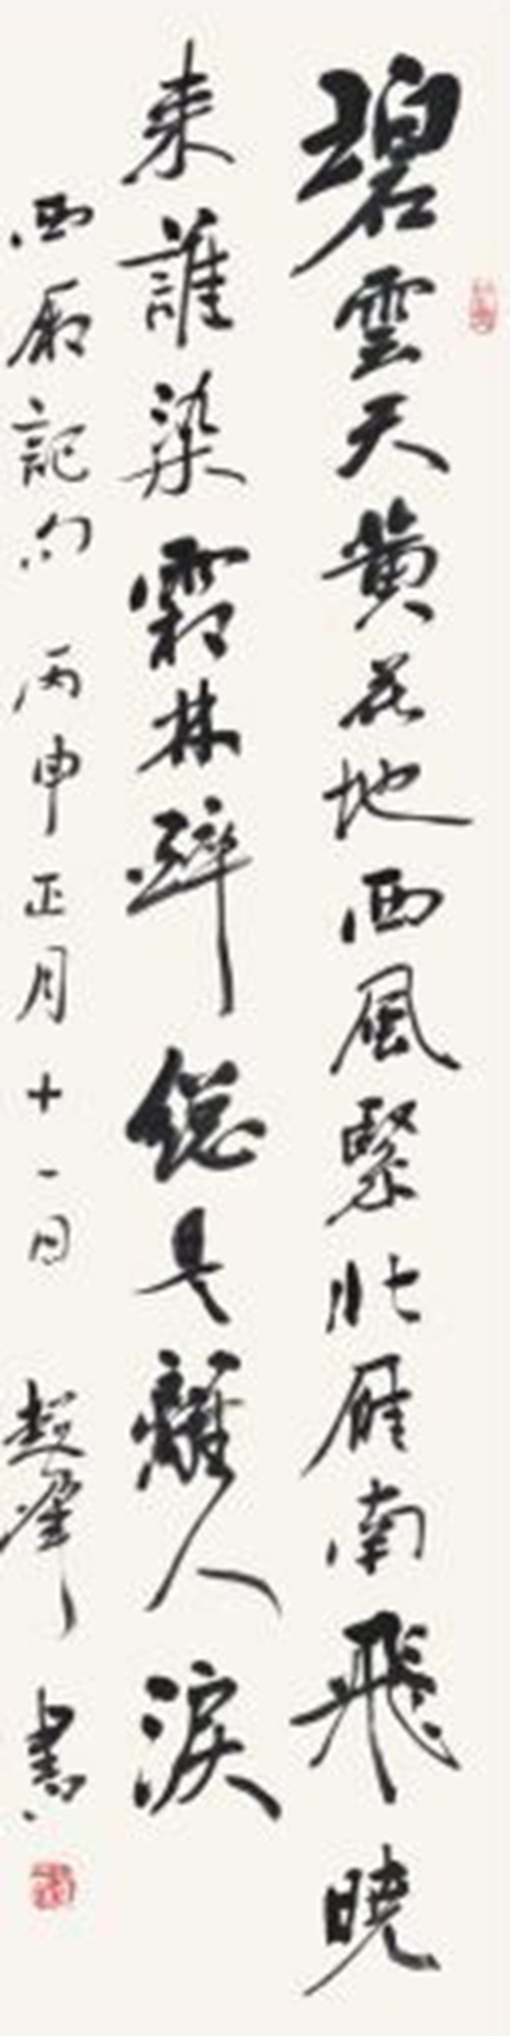 碧雲天黄花地西風緊北雁南飛曉
来誰染霜林醉總是離人淚
西厢記句 丙申正月十一日 書